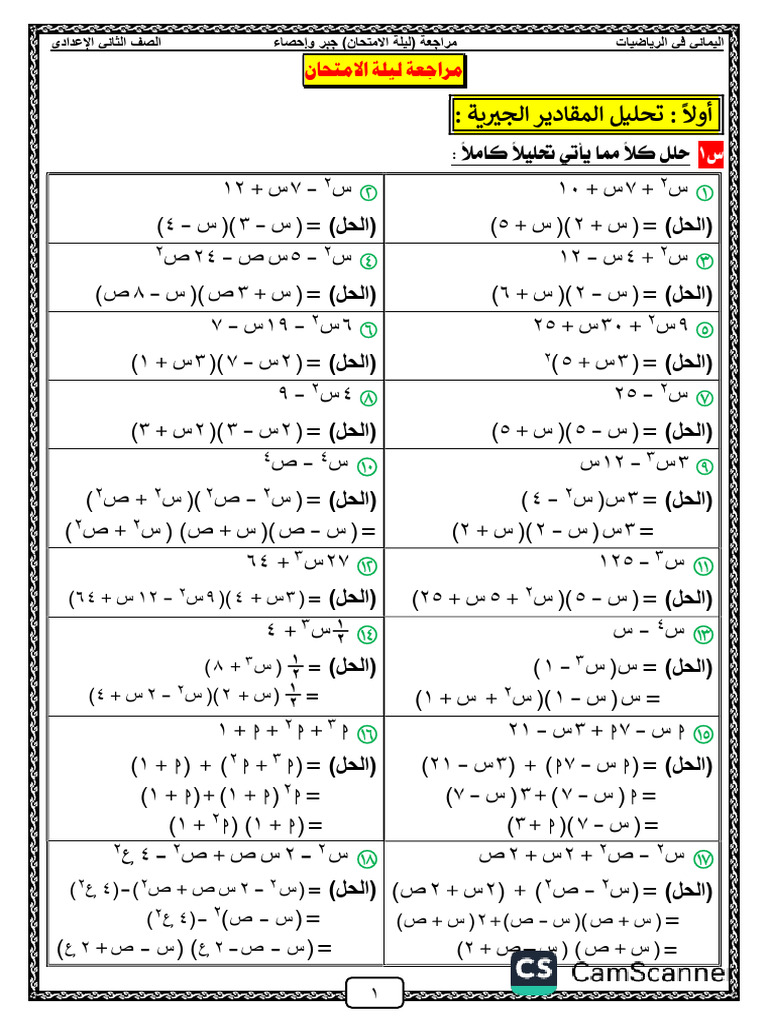 اليمانى فى الرياضيات مراجعة (ليلة الامتحان) جبر وإحصاء الصف الثانى الإعدادى
مراجعة ليلة الامتحان
أولاً : تحليل المقادير الجبرية :
س١ حلل كلاً مما يأتي تحليلاً كاملاً :
١ س٢ + ٧س + ١٠
(الحل) = (س + ٢)(س + ٥)
٢ س٢ – ٧س + ١٢
(الحل) = (س – ٣)(س – ٤)
٣ س٢ + ٤س – ١٢
(الحل) = (س – ٢)(س + ٦)
٤ س٢ – ٥س ص – ٢٤ ص٢
(الحل) = (س + ٣ص)(س – ٨ ص)
٥ ٩س٢ + ٣٠س + ٢٥
(الحل) = (٣س + ٥)٢
٦ ٦س٢ – ١٩س – ٧
(الحل) = (٢س – ٧)(٣س + ١)
٧ س٢ – ٢٥
(الحل) = (س – ٥)(س + ٥)
٨ ٤س٢ – ٩
(الحل) = (٢س – ٣)(٢س + ٣)
٩ ٣س٣ – ١٢س
(الحل) = ٣س(س٢ – ٤)
= ٣س(س – ٢)(س + ٢)
١٠ س٤ – ص٤
(الحل) = (س٢ – ص٢)(س٢ + ص٢)
= (س – ص)(س + ص) (س٢ + ص٢)
١١ س٣ – ١٢٥
(الحل) = (س – ٥)(س٢ + ٥س + ٢٥)
١٢ ٢٧س٣ + ٦٤
(الحل) = (٣س + ٤)(٩س٢ – ١٢س + ٦٤)
١٣ س٤ – س
(الحل) = س(س٣ – ١)
= س(س – ١)(س٢ + س + ١)
١٤ ١/٢س٣ + ٤
(الحل) = ١/٢ (س٣ + ٨)
= ١/٢ (س + ٢)(س٢ – ٢س + ٤)
١٥ ٩س – ٧٩ + ٣س – ٢١
(الحل) = (٩س – ٧٩) + (٣س – ٢١)
= ٩(س – ٧) + ٣(س – ٧)
= (س – ٧)(٩ + ٣)
١٦ ٩٣ + ٩٢ + ٩ + ١
(الحل) = (٩٣ + ٩٢) + (٩ + ١)
= ٩٢(٩ + ١) + (٩ + ١)
= (٩ + ١) (٩٢ + ١)
١٧ س٢ – ص٢ + ٢س + ٢ص
(الحل) = (س٢ – ص٢) + (٢س + ٢ص)
= (س + ص)(س – ص) + ٢(س + ص)
= (س + ص) (س – ص + ٢)
١٨ س٢ – ٢س ص + ص٢ – ٤ع٢
(الحل) = (س٢ – ٢س ص + ص٢) – (٤ع٢)
= (س – ص)٢ – (٤ع٢)
= (س – ص – ٢ع) (س – ص + ٢ع)
١
CS CamScanner